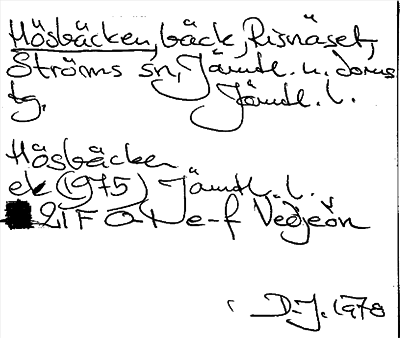 Hösbäcken, bäck, Risnäset,
Ströms sn, Jämtl. n. doms
tg. Jämtl. l.
Hösbäcken
ek (1975) Jämtl. l.
21F 0-1 e-f Vedjeön
D.J. 1978